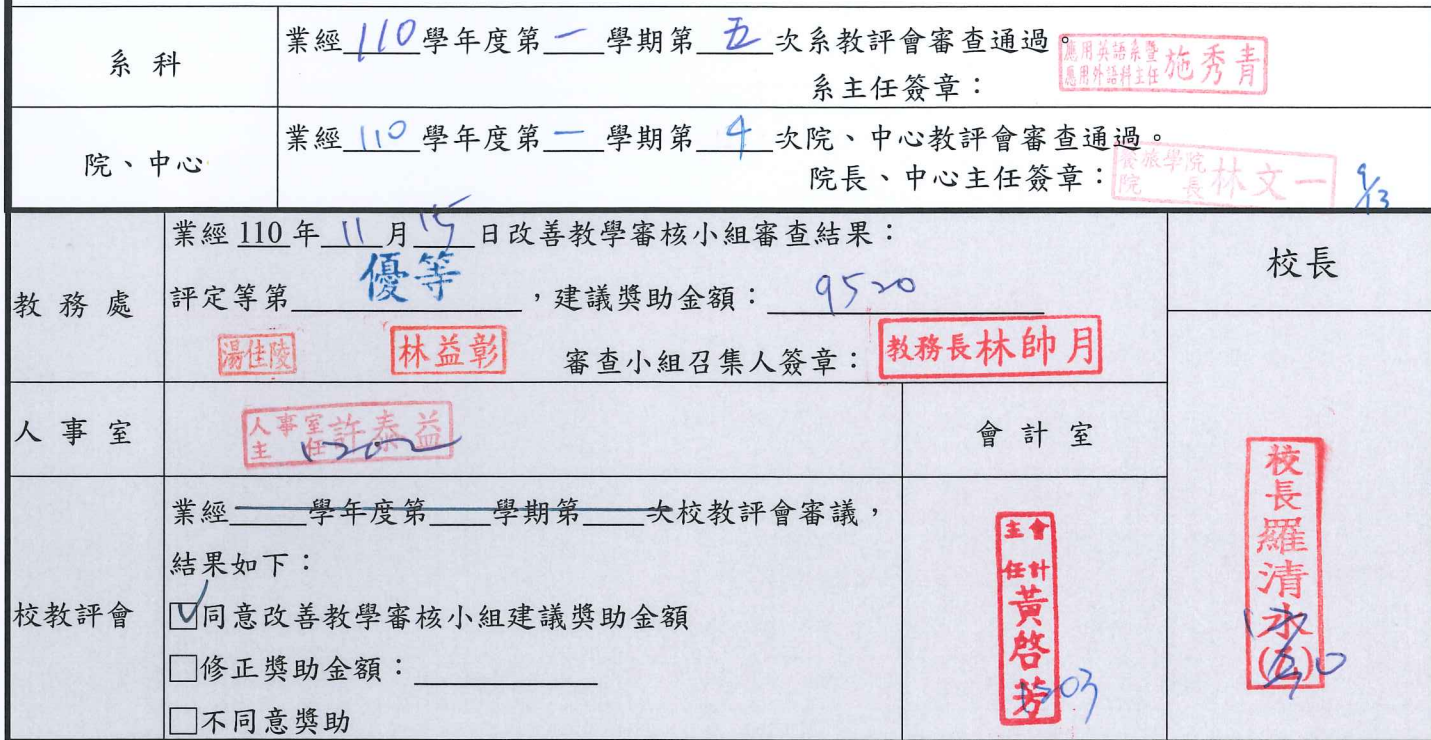 系科
業經110學年度第一學期第五次系教評會審查通過。
系主任簽章：
應用英語系暨應用外語科主任 施秀青
院、中心
業經110學年度第一學期第4次院、中心教評會審查通過。
院長、中心主任簽章：
餐旅學院院長 林文一
9/13
教務處
業經110年11月15日改善教學審核小組審查結果：
評定等第優等，建議獎助金額：9520
湯佳陵 林益彰 審查小組召集人簽章：教務長林帥月
校長
人事室
人事室主任許泰益
1202
會計室
校教評會
業經____學年度第____學期第____次校教評會審議，
結果如下：
☑同意改善教學審核小組建議獎助金額
□修正獎助金額：
□不同意獎助
會計主任黃啓芳
1203
校長羅清水